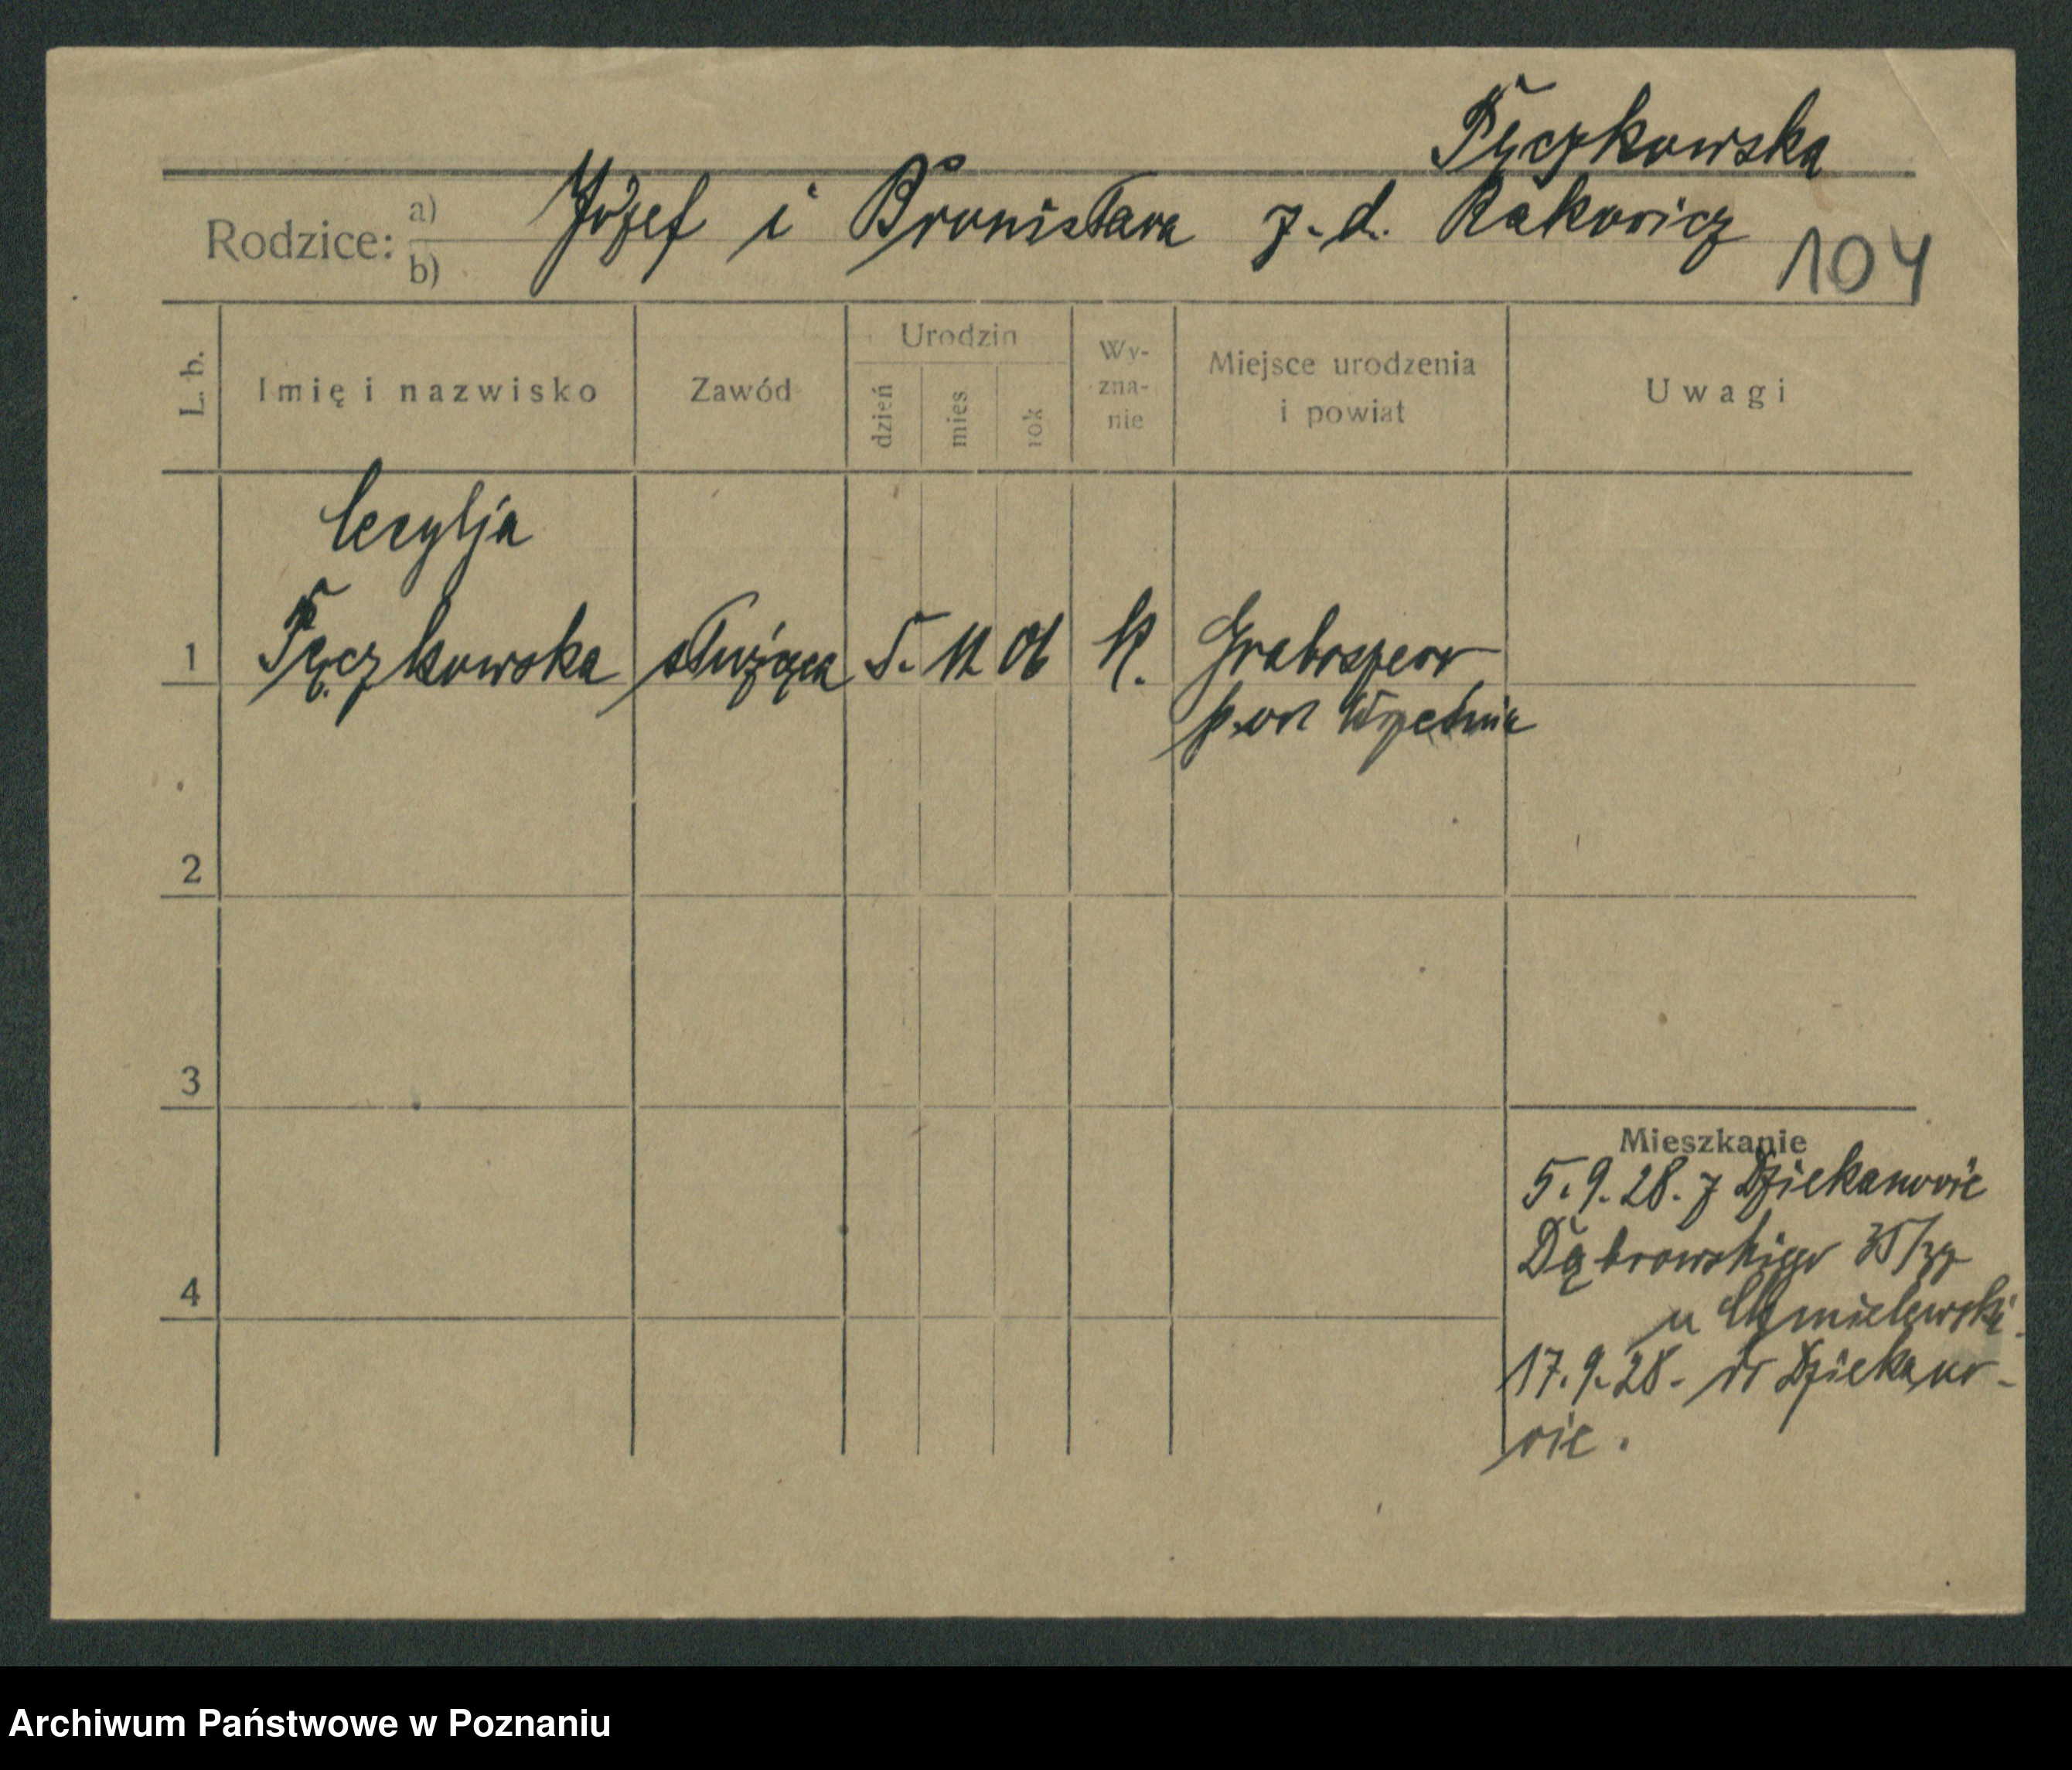 Pęczkowska
Rodzice: a) Józef i Bronisława z. d. Rakowicz
b)
104
L. b.
Imię i nazwisko
Zawód
Urodzin
dzień
mies.
rok
Wy-
zna-
nie
Miejsce urodzenia
i powiat
Uwagi
Cecylja
1 Pęczkowska służąca 5. 11 06 k. Graboszewo
pow Września
2
3
4
Mieszkanie
5.9.28. z Dziekanowic
Dąbrowskiego
u Chmielewski
17.9.28. do Dziekano-
wic.
Archiwum Państwowe w Poznaniu